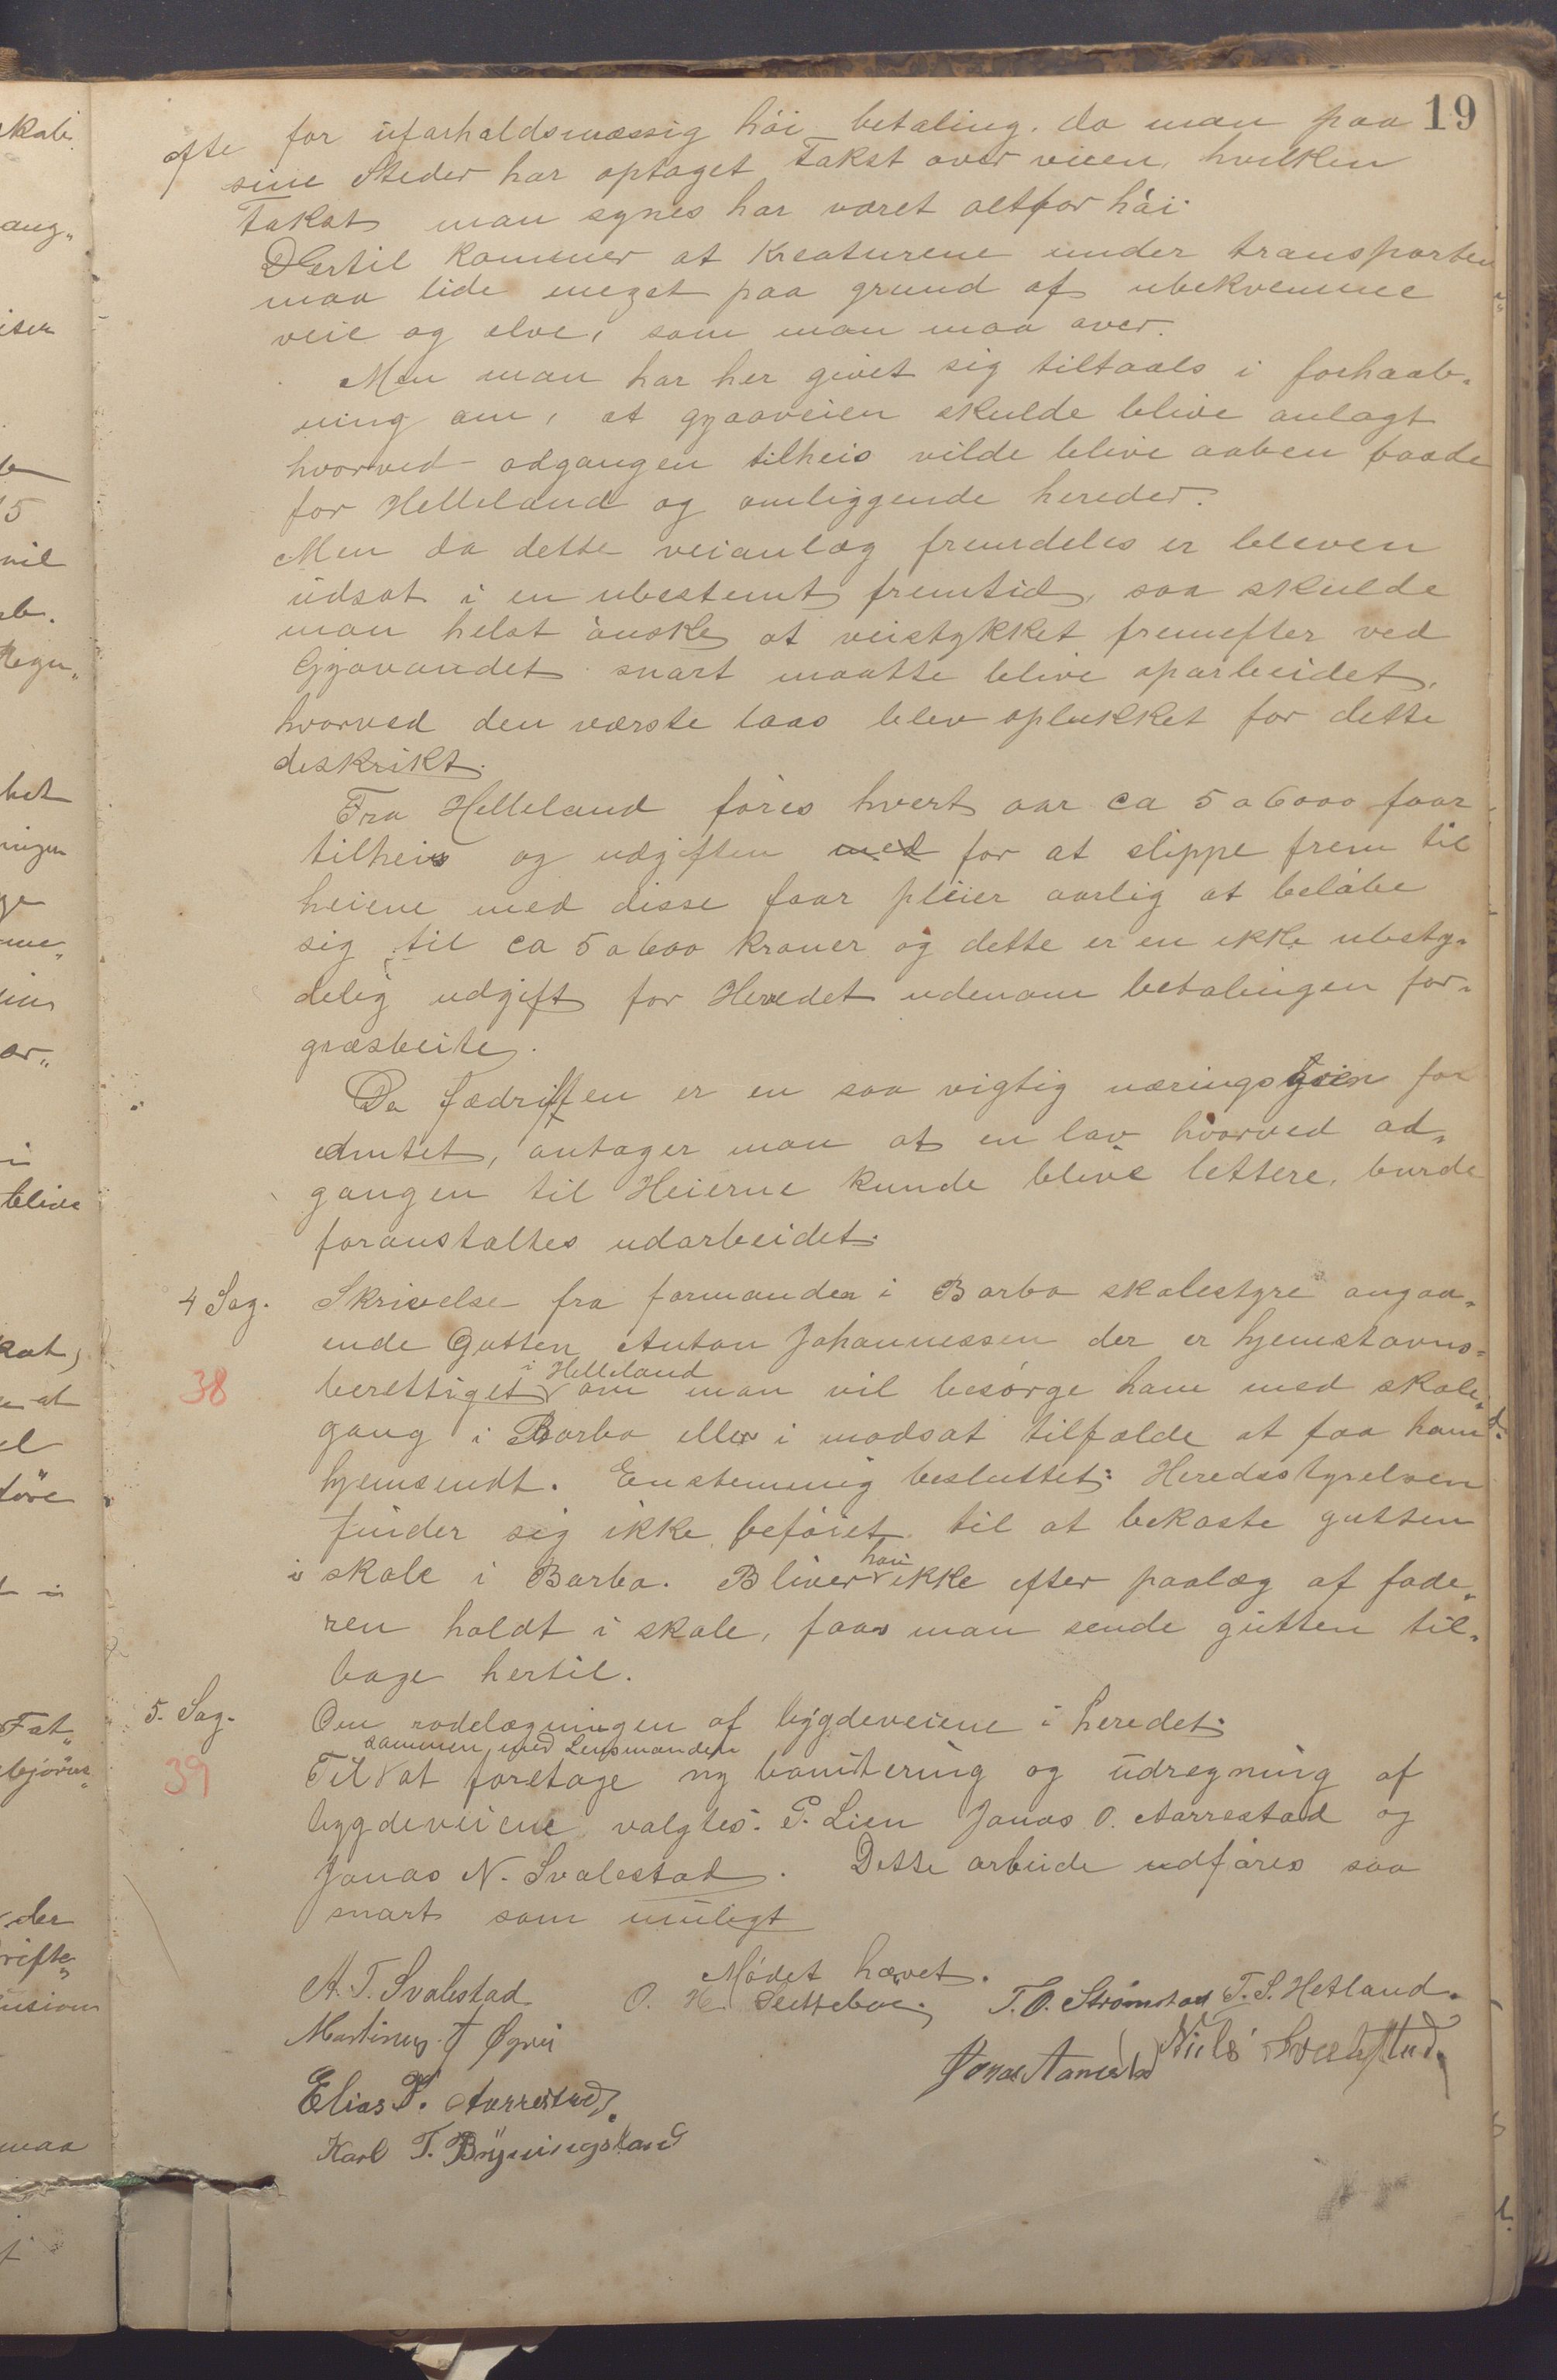 19
ofte for uforholdsmæssig høi betaling, da man paa
sine Steder har optaget Takst over veien, hvilken
Takst man synes har været altfor høi.
Dertil kommer at Kreaturene under transporten
maa lide meget paa grund af ubekvemme
veie og elve, som man maa over.
Men man har her givet sig tiltaals i forhaab-
ning om, at gyaaveien skulde blive anlagt
hvorved adgangen tilheis vilde blive aaben baade
for Helleland og omliggende hereder.
Men da dette veianlæg fremdeles er bleven
udsat i en ubestemt fremtid, saa skulde
man helst ønske at veistykket fremefter ved
Gyavandet snart maatte blive oparbeidet,
hvorved den værste laas blev oplukket for dette
deskrikt.
Fra Helleland føres hvert aar ca 5 a 6000 faar
tilheis og udgiften med for at slippe frem til
heiene med disse faar pleier aarlig at beløbe
sig til ca 5 a 600 kroner og dette er en ikke ubety-
delig udgift for Heredet udenom betalingen for-
græsbeite.
Da fædriften er en saa vigtig næringsgren for
amtet, antager man at en lov hvorved ad-
gangen til Heierne kunde blive lettere, burde
foranstaltes udarbeidet.
4 Sag. Skrivelse fra formanden i Barbo skolestyre angaa-
ende Gutten Anton Johannessen der er hjemstavns-
i Helleland
38 berettiget om man vil besørge ham med skole-
gang i Barbo eller i modsat tilfælde at faa ham
hjemsendt. Enstemmig besluttet: Heredsstyrelsen
finder sig ikke beføiet til at bekoste gutten
han
i skole i Barbo. Bliver ikke efter paalæg af fade-
ren holdt i skole, faar man sende gutten til-
bage hertil.
5. Sag. Om rodelægningen af bygdeveiene i heredet:
sammen med Lensmanden
39 Til at foretage ny bonitering og udregning af
bygdeveiene valgtes: P. Lien Jonas O. Aarrestad og
Jonas N. Svalestad. Dette arbeide udføres saa
snart som muligt
Mødet hævet.
A. T. Svalestad O. H. Slettebøe. T. O. Strømstad T. S. Hetland.
Martinus T Øgrei
Jonas Aarrestad Niels Svalestad.
Elias P. Aarrestad.
Karl T. Bryningsland